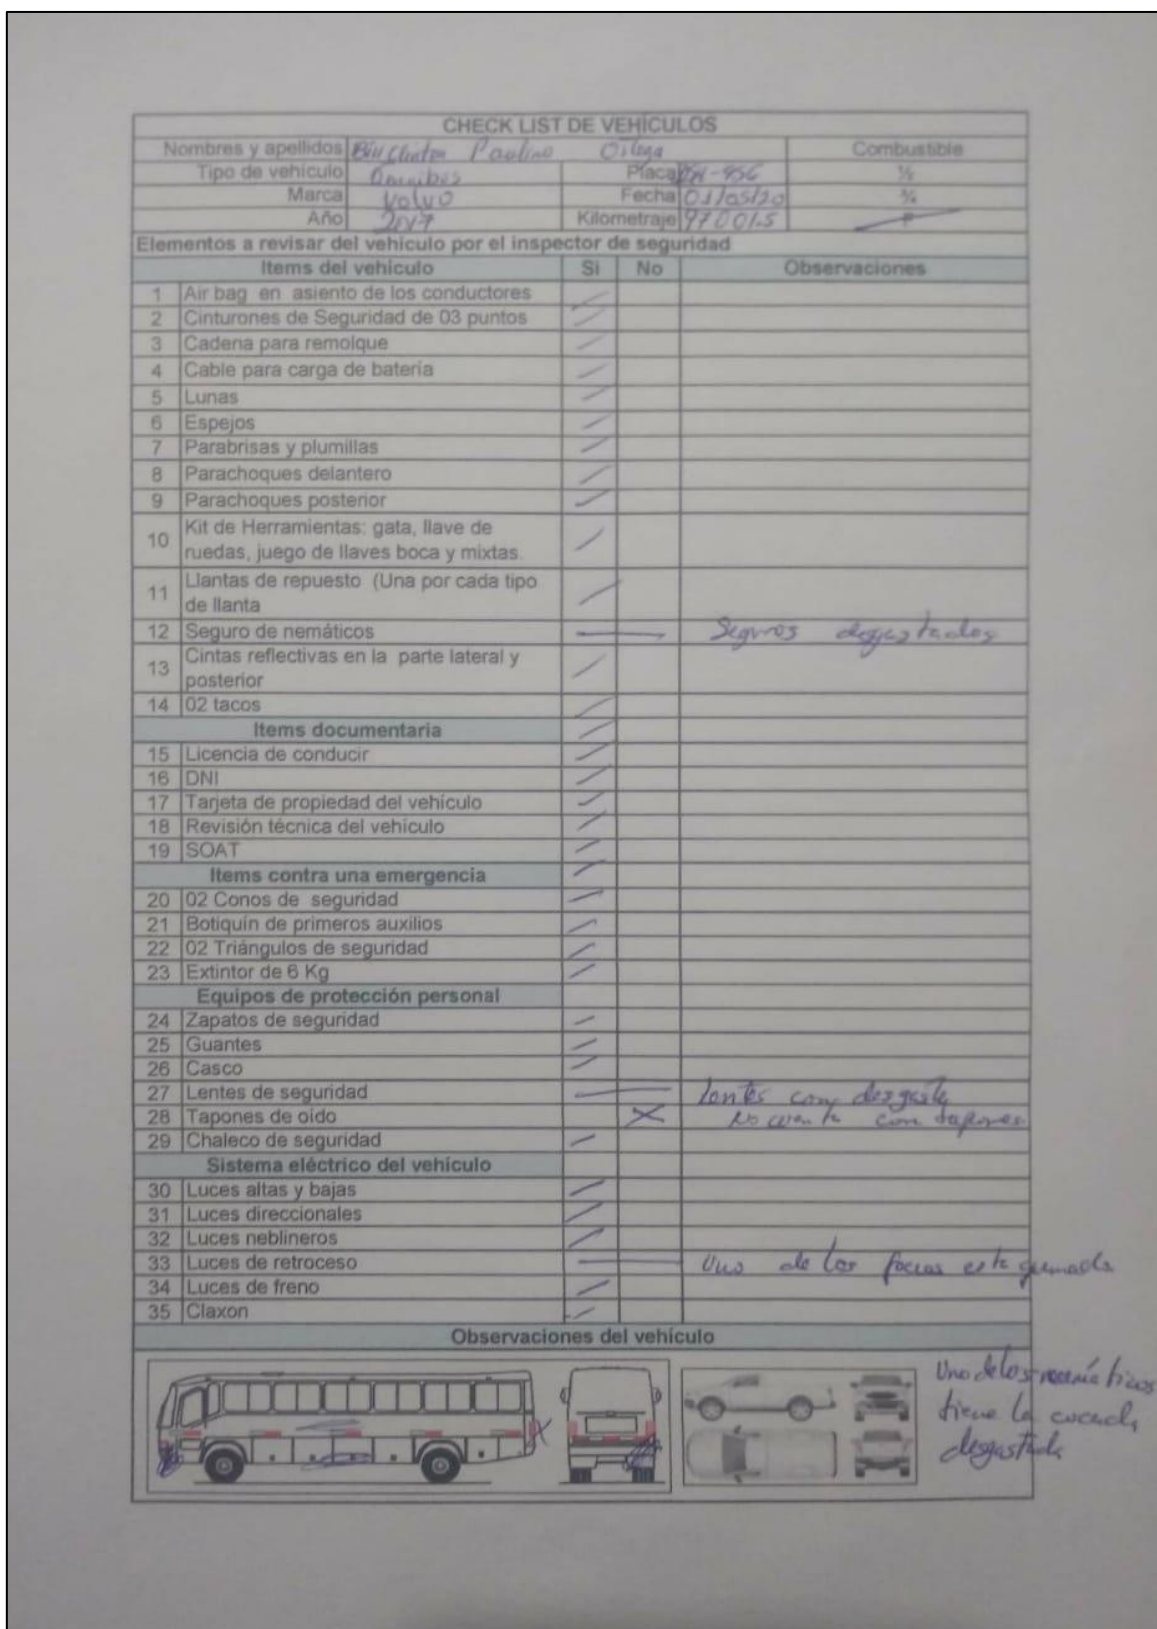 CHECK LIST DE VEHÍCULOS
Nombres y apellidos Bill Clinton Paolino Combustible
Tipo de vehículo Omnibus Placa ½
Marca Volvo Fecha 01/05/20 ¾
Año 2017 Kilometraje F
Elementos a revisar del vehículo por el inspector de seguridad
Items del vehículo Si No Observaciones
1 Air bag en asiento de los conductores
2 Cinturones de Seguridad de 03 puntos
3 Cadena para remolque
4 Cable para carga de batería
5 Lunas
6 Espejos
7 Parabrisas y plumillas
8 Parachoques delantero
9 Parachoques posterior
10 Kit de Herramientas: gata, llave de
ruedas, juego de llaves boca y mixtas.
11 Llantas de repuesto (Una por cada tipo
de llanta
12 Seguro de nemáticos Seguros desgastados
13 Cintas reflectivas en la parte lateral y
posterior
14 02 tacos
Items documentaria
15 Licencia de conducir
16 DNI
17 Tarjeta de propiedad del vehículo
18 Revisión técnica del vehículo
19 SOAT
Items contra una emergencia
20 02 Conos de seguridad
21 Botiquín de primeros auxilios
22 02 Triángulos de seguridad
23 Extintor de 6 Kg
Equipos de protección personal
24 Zapatos de seguridad
25 Guantes
26 Casco
27 Lentes de seguridad lentes con desgaste
28 Tapones de oído No cuenta con tapones
29 Chaleco de seguridad
Sistema eléctrico del vehículo
30 Luces altas y bajas
31 Luces direccionales
32 Luces neblineros
33 Luces de retroceso Uno de los focos esta quemado
34 Luces de freno
35 Claxon
Observaciones del vehículo
Uno de los neumáticos
tiene la cocada
desgastada